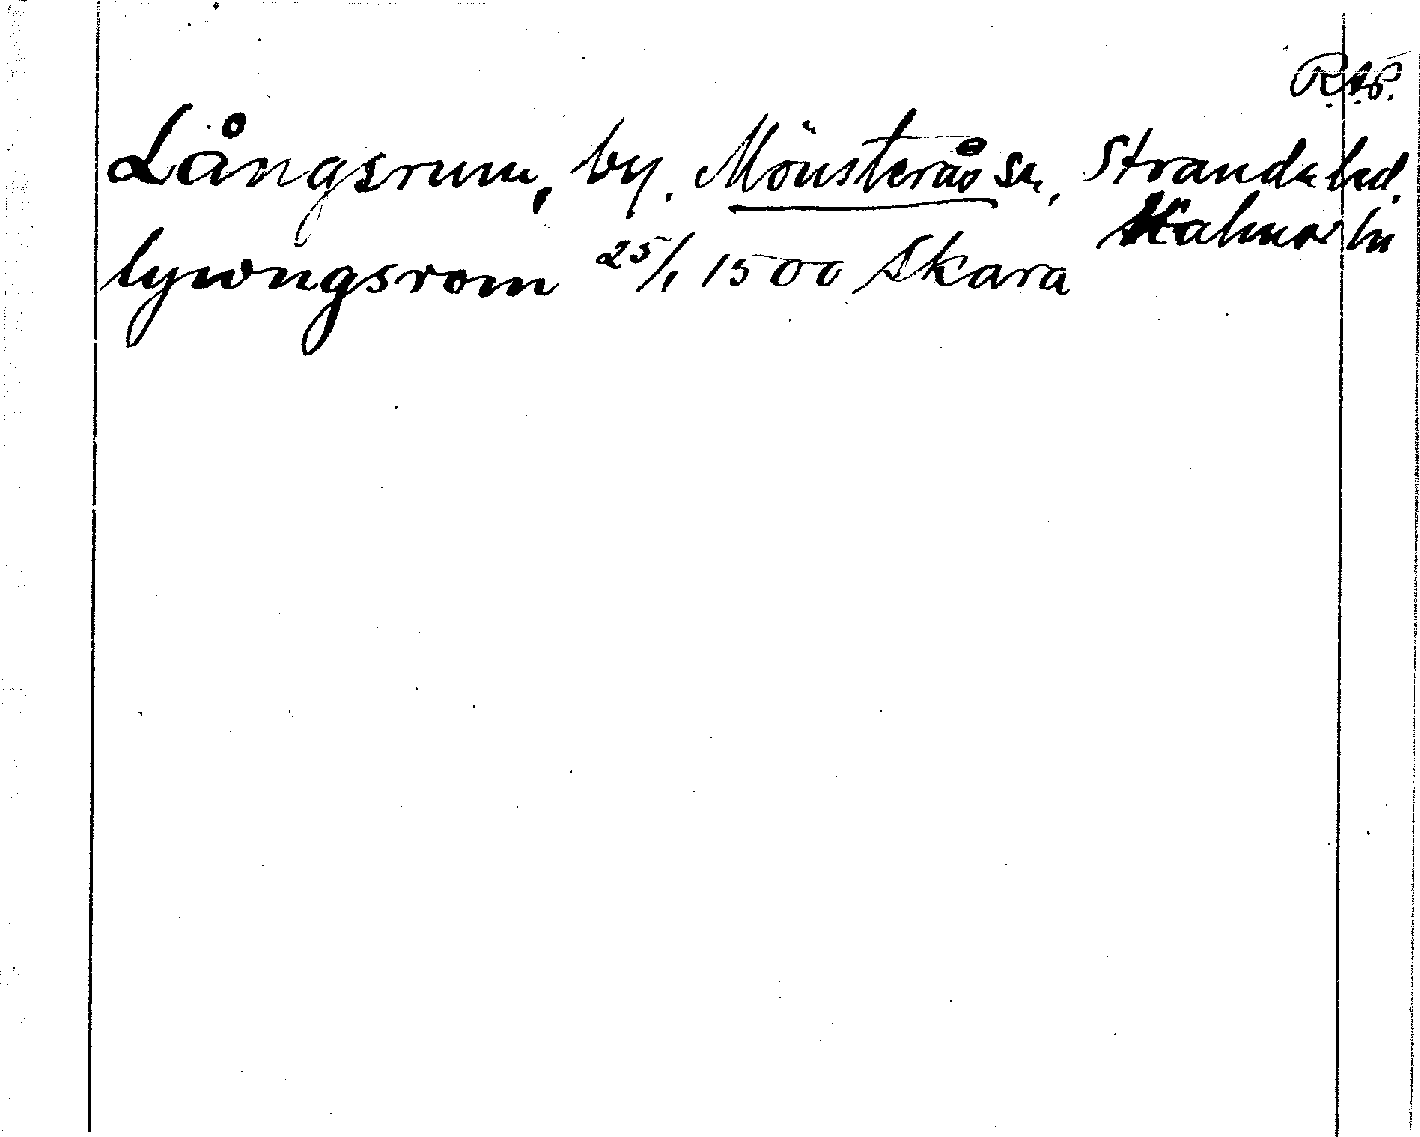 R.A.P.
Långsrum, by. Mönsterås sn, Stranda hd.
Kalmar ln
lywngsrom 25/1 1500 Skara